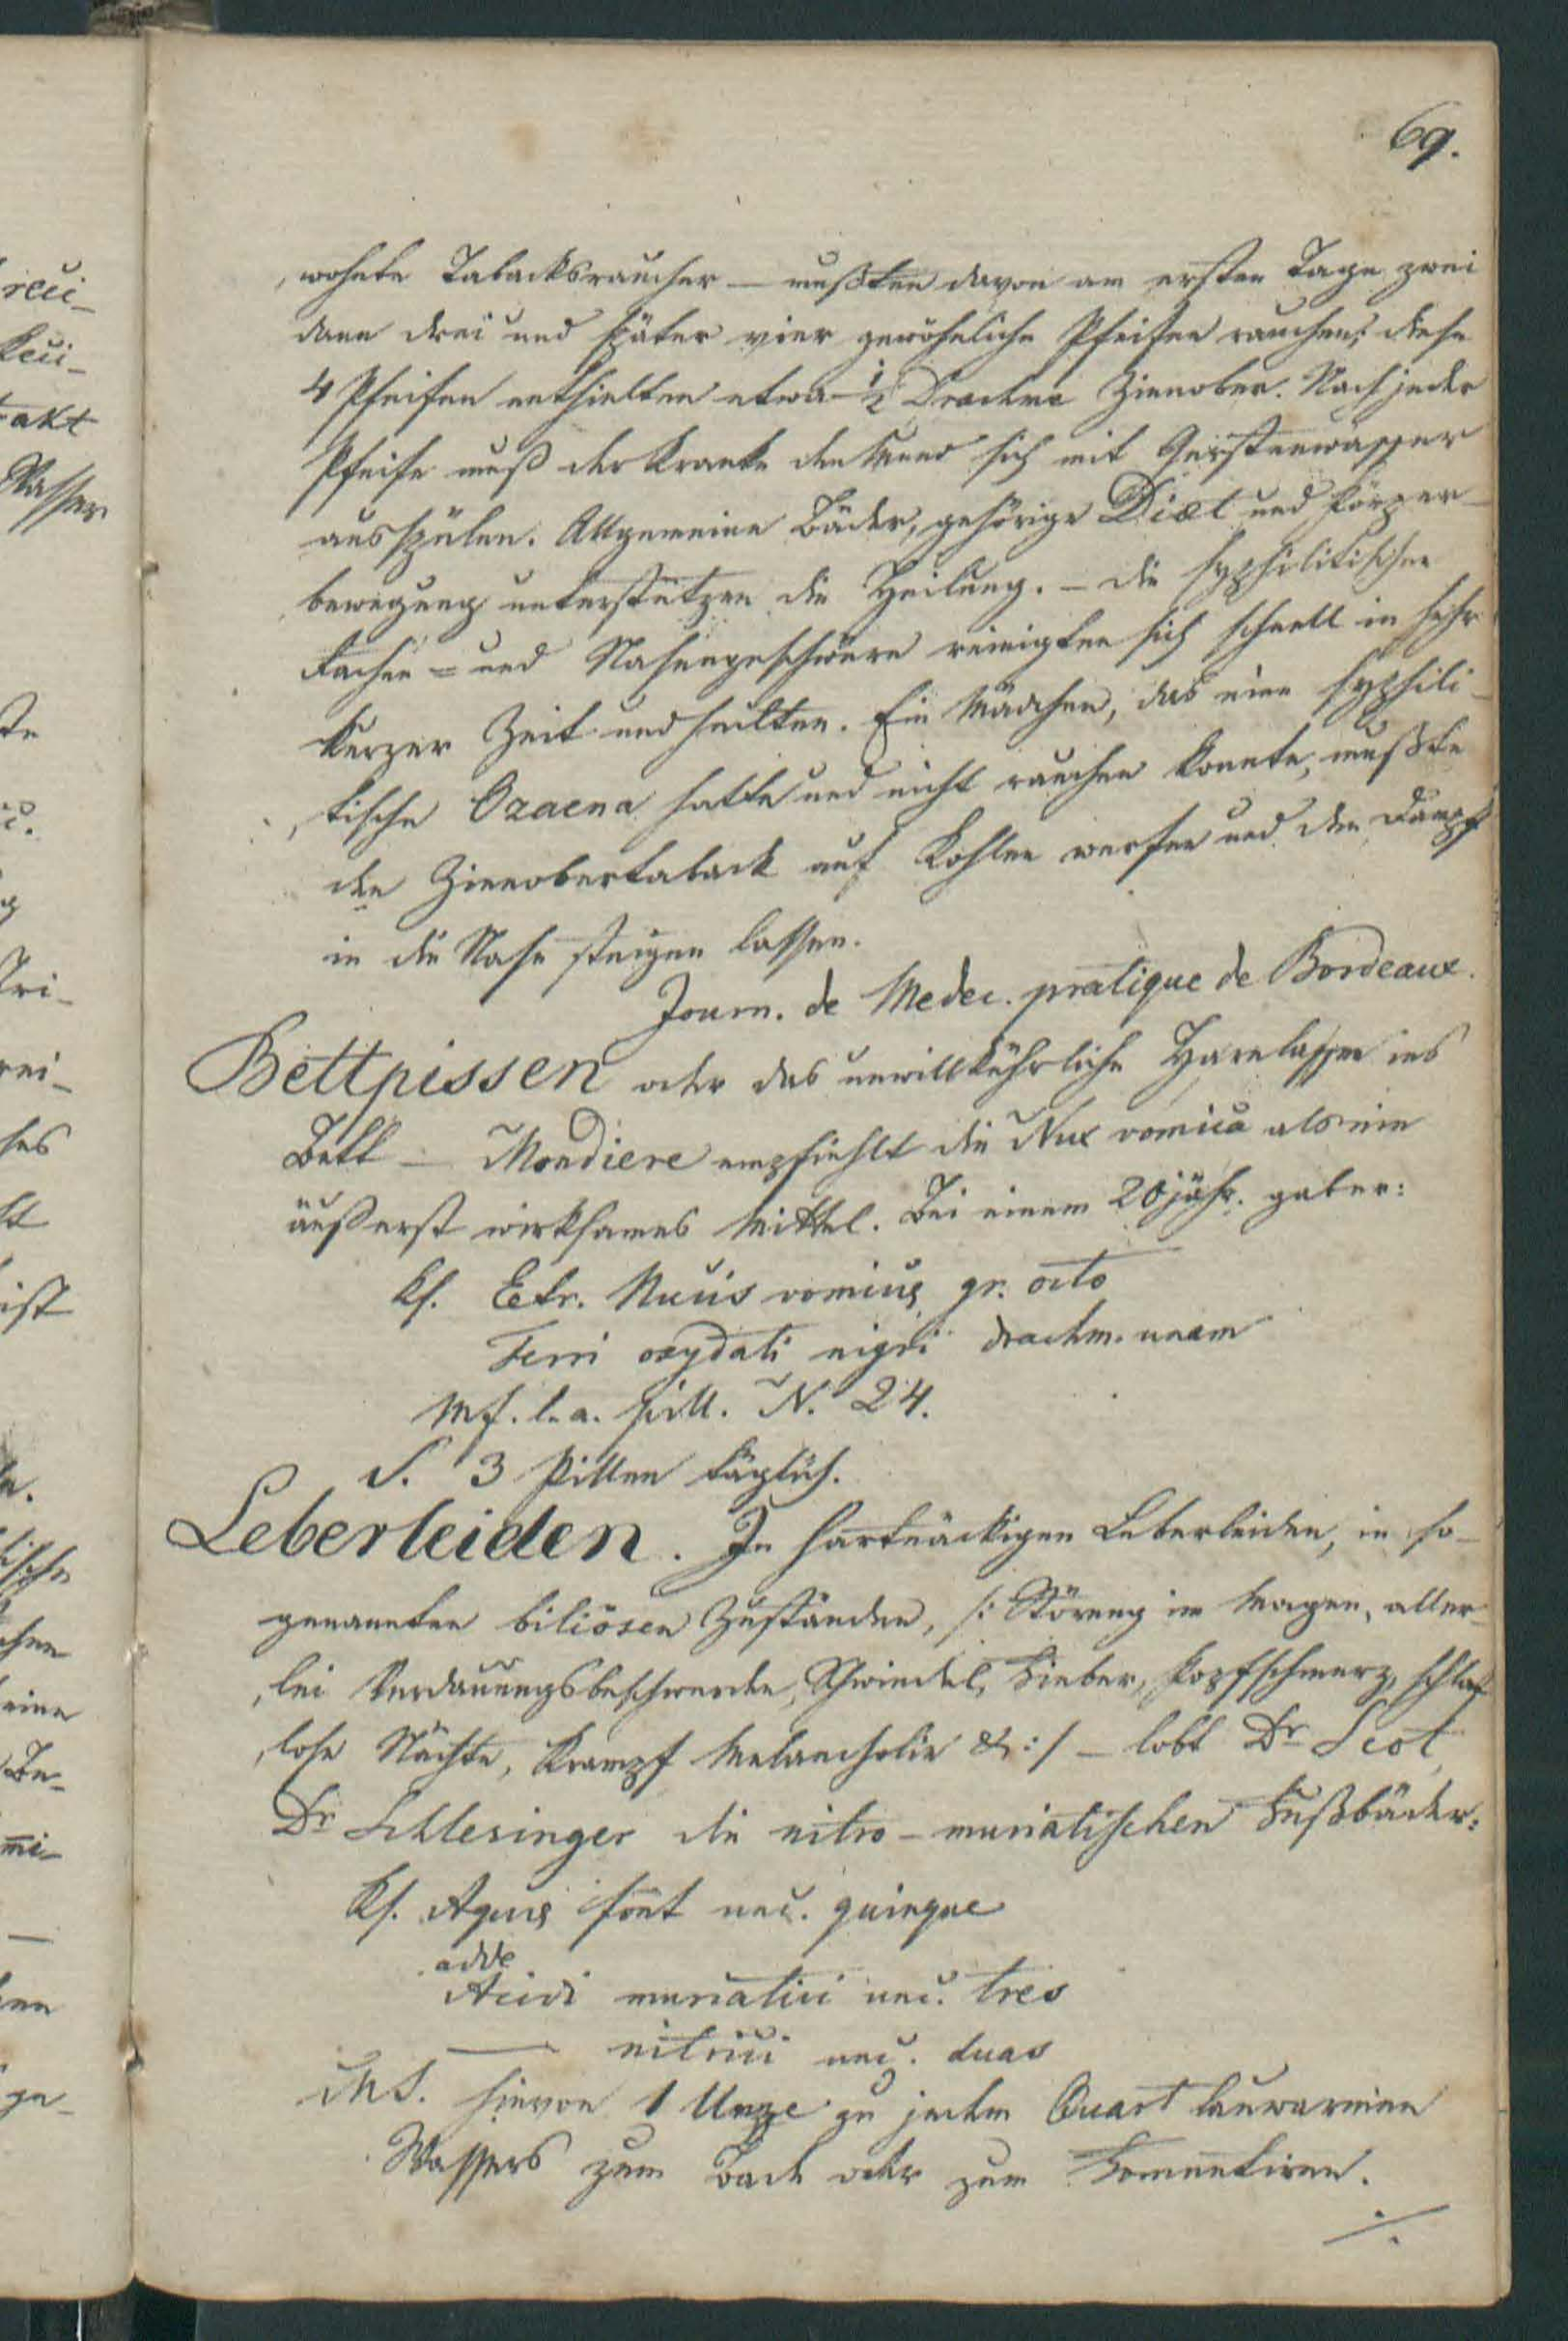 69.
wohnte Tabacksraucher — mußten davon am ersten Tage zwei
dann drei und später vier gewöhnliche Pfeifen rauchen; diese
4 Pfeifen enthielten etwa ½ Drachme Zinnober. Nach jeder
Pfeife muß der Kranke den Mund sich mit Gerstenwasser
ausspülen. Allgemeine Bäder, gehörige Diæt und Körper-
bewegung unterstützen die Heilung. – Die syphilitischen
Rachen = und Nasengeschwüre reinigten sich schnell in sehr
kurzer Zeit und heilten. Ein Mädchen, das eine syphili-
tische Ozaena hatte und nicht rauchen konnte, mußte
den Zinnobertaback auf Kohlen werfen und den Dampf
in die Nase steigen lassen.
Journ. de Medec. pratique de Bordeaux.
Bettpissen oder das unwillkührliche Harnlassen ins
Bett — Mondiere empfiehlt die Nux vomica als ein
äußerst wirksames Mittel. Bei einem 20jähr. gab er:
Rf. Extr. Nucis vomicæ gr. octo
Ferri oxydati nigri drachm. unam
Mf. l. a. pill. N. 24.
S. 3 Pillen täglich.
Leberleiden. In hartnäckigen Leberleiden, in so-
genannten biliösen Zuständen, /: Störung im Magen, aller-
lei Verdauungsbeschwerden, Schwindel, Fieber, Kopfschmerz, schlaf
lose Nächte, Krampf Melancholie &:/ — lobt Dr Scot,
Dr Schlesinger die nitro-muriatischen Fußbäder:
Rf. Aquæ font unc. quinque
adde
Acidi muriatici unc. tres
— nitrici unc. duas
MS. hievon 1 Unze zu jedem Quart lauwarmen
Wassers zum Bade oder zum Fomentiren.
./.